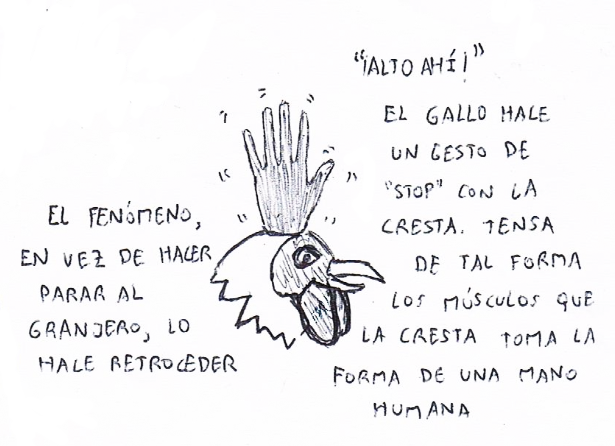 "¡ALTO AHÍ!"
EL GALLO HACE
UN GESTO DE
"STOP" CON LA
CRESTA. TENSA
DE TAL FORMA
LOS MÚSCULOS QUE
LA CRESTA TOMA LA
FORMA DE UNA MANO
HUMANA
EL FENÓMENO,
EN VEZ DE HACER
PARAR AL
GRANJERO, LO
HACE RETROCEDER